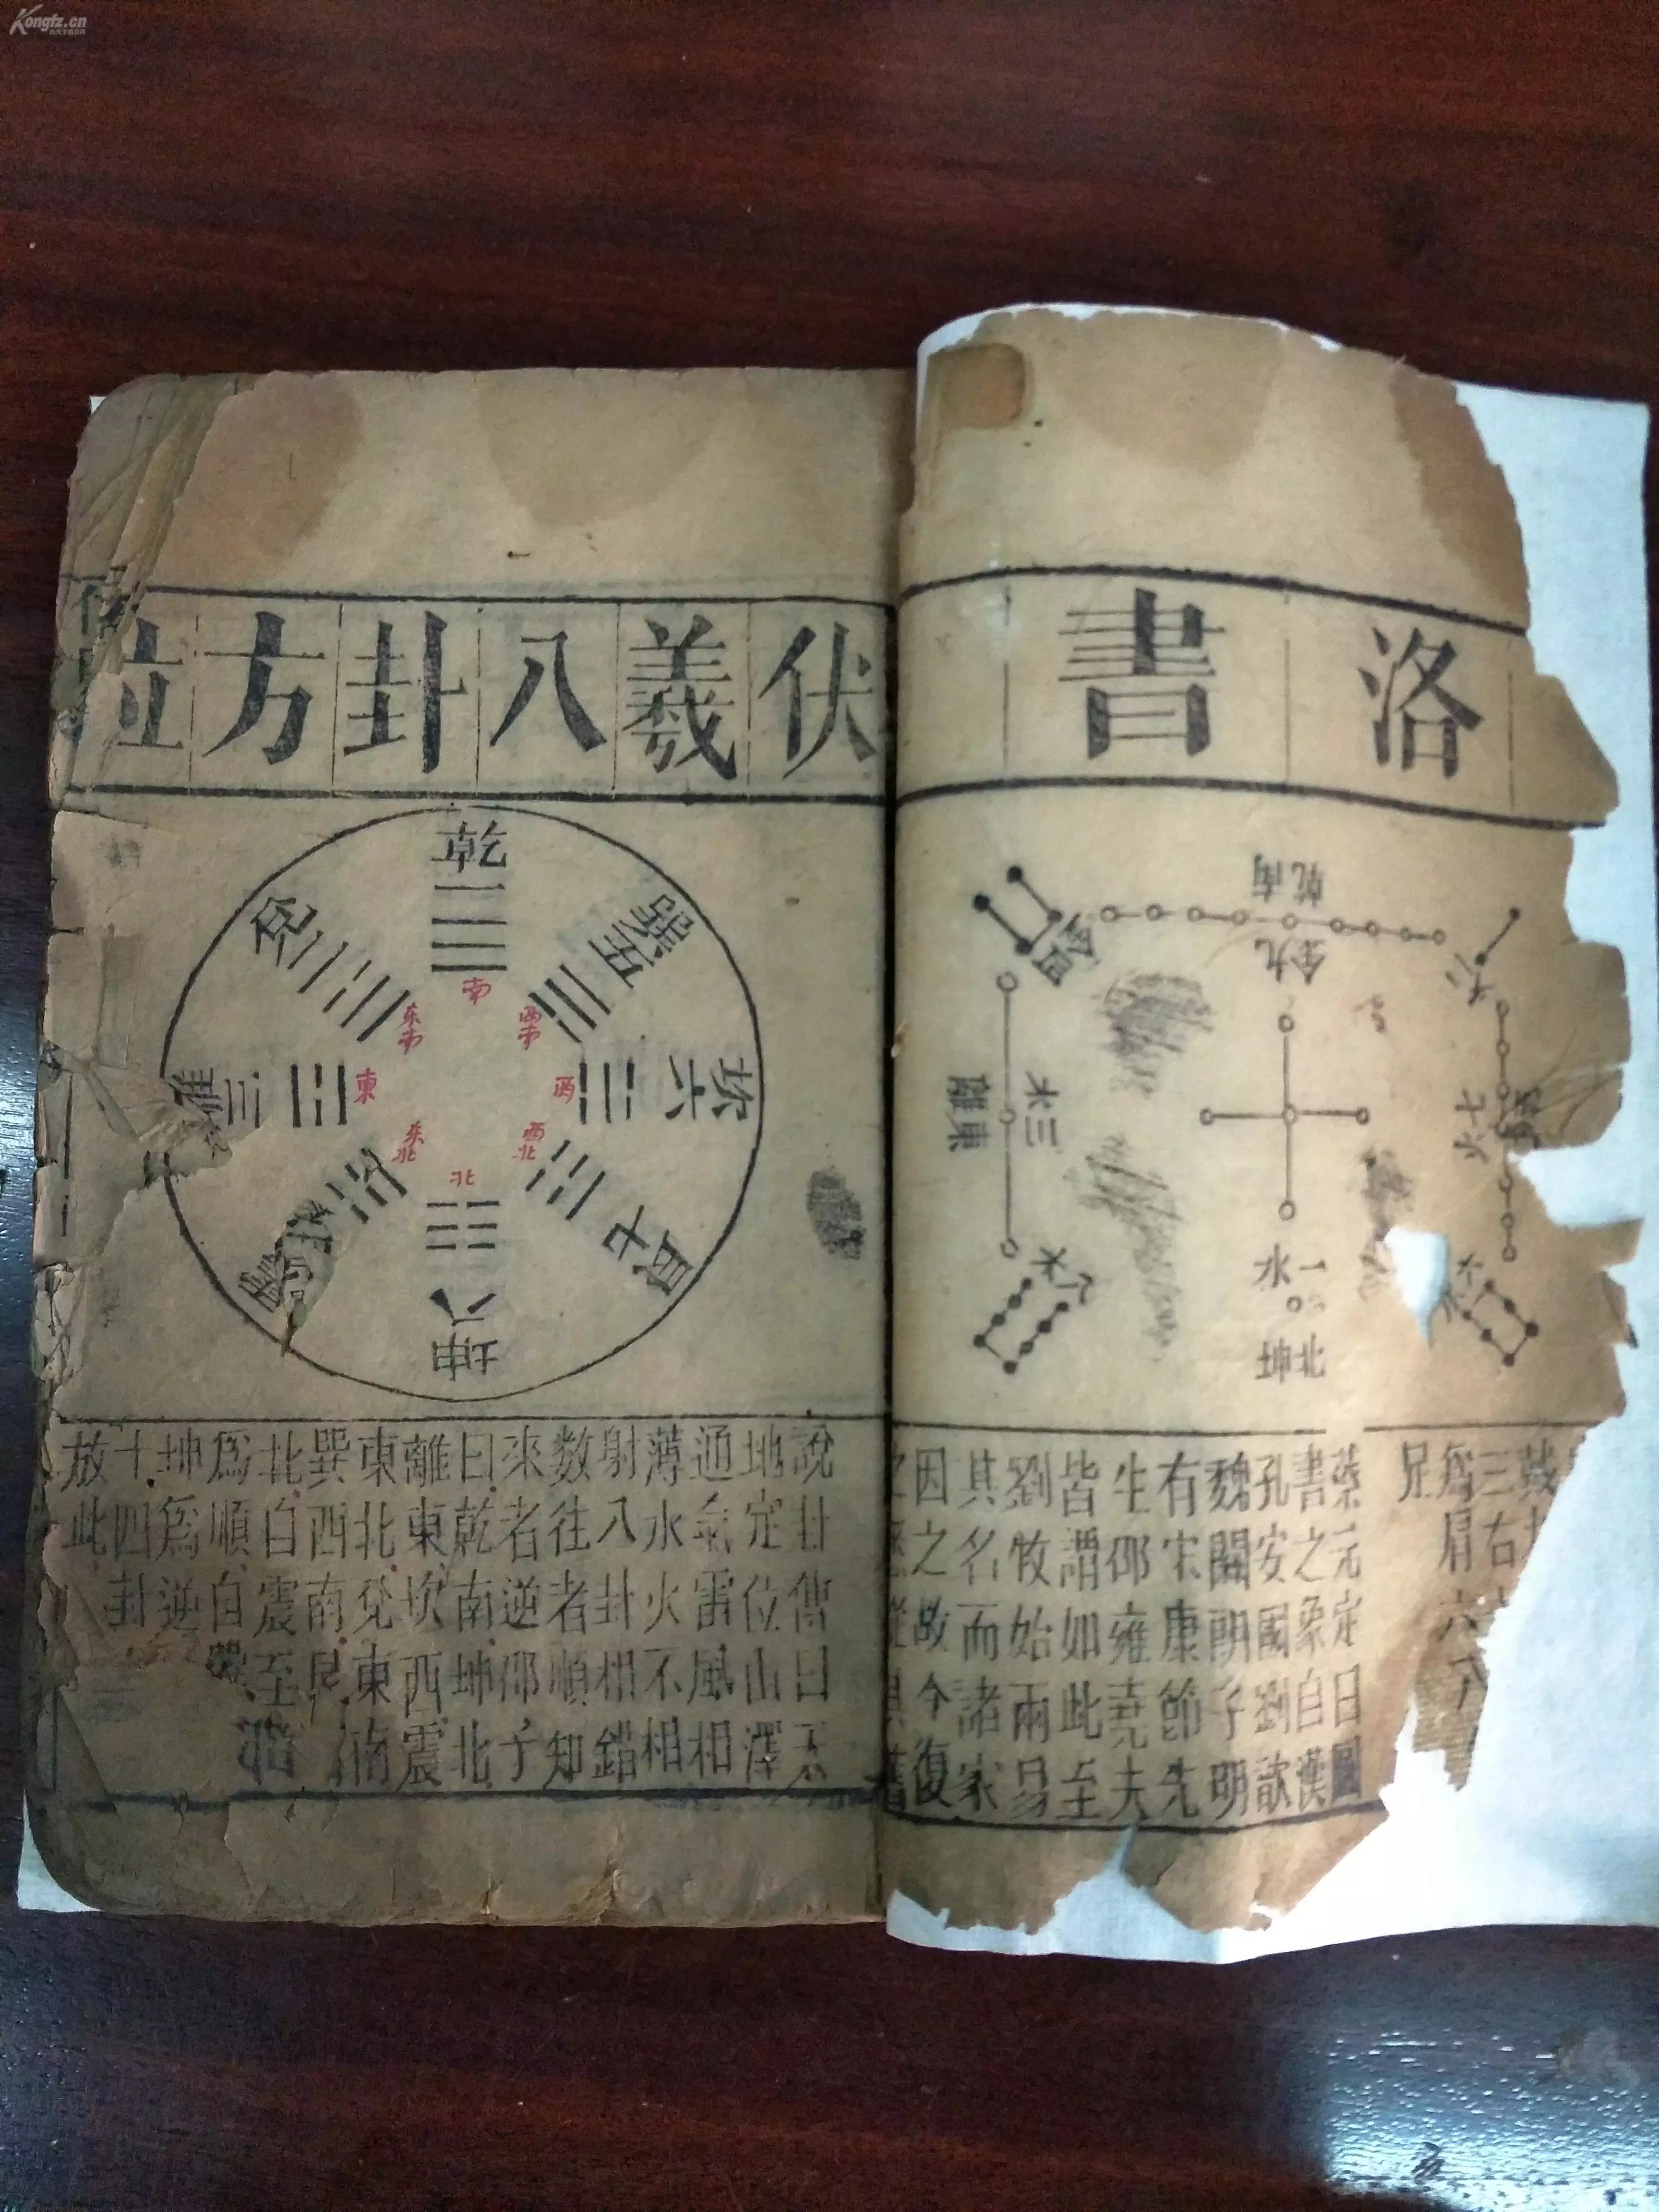 Kongfz.cn
洛書
乾南
金九
離東
木三
火七
水一
坤北
木八
三右
爲肩六八
足
蔡元定曰圖
書之象自漢
孔安國劉歆
魏關朗子明
有宋康節先
生邵雍堯夫
皆謂如此至
劉牧始兩易
其名而諸家
因之故今復
伏羲八卦方位
乾一
兌二
離三
巽五
坎六
艮七
坤八
南
西南
西
西北
北
东北
東
东南
說卦傳曰天
地定位山澤
通氣雷風相
薄水火不相
射八卦相錯
數往者順知
來者逆邵子
曰乾南坤北
離東坎西震
東北兌東南
巽西南艮
北自震至
爲順自
坤爲逆
十四卦
放此